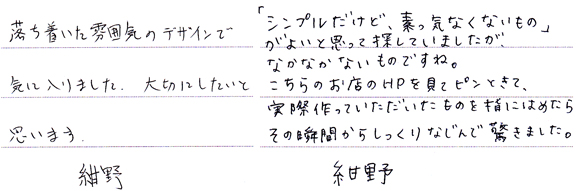 落ち着いた雰囲気のデザインで
気に入りました。大切にしたいと
思います。
紺野
「シンプルだけど、素っ気なくないもの」
がよいと思って探していましたが、
なかなかないものですね。
こちらのお店のHPを見てピンときて、
実際作っていただいたものを指にはめたら
その瞬間からしっくりなじんで驚きました。
紺野